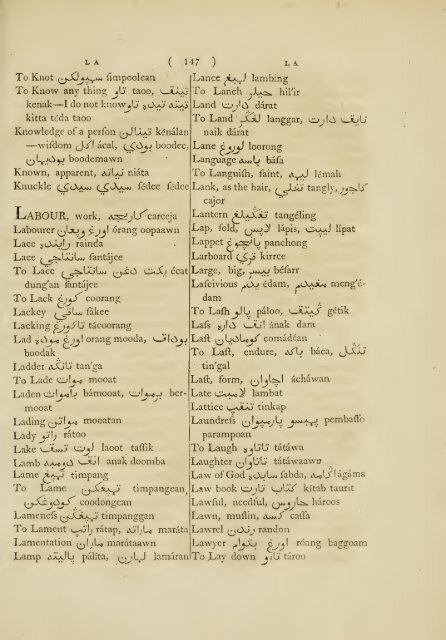 L A ( 147 ) L A
To Knot سيمڤولكن ſimpoolean
To Know any thing تاو taoo, تيڠݢ
kenak—I do not know تاو تيده كيته
kitta téda taoo
Knowledge of a perſon كينالن kénálan
—wiſdom عقل ácal, بودي boodee,
boodemawn
Known, apparent, نيات niáta
Knuckle سيدي سيدي ſédee ſedee
LABOUR, work, كارج careeja
Labourer اورڠ órang oopaawn
Lace رايندا rainda
Lace سانتاجي ſantájee
To Lace ايكت دڠن سانتاجي écat
dung'an ſantájee
To Lack كورڠ coorang
Lackey ساكي ſákee
Lacking تاكورڠ tácoorang
Lad اورڠ مودا orang mooda, بوداق
boodak
Ladder تاڠݢ tan'ga
To Lade موات mooat
Laden باموات bámooat, برموات ber-
mooat
Lading مواتن mooatan
Lady راتو rátoo
Lake لاوت تاسك laoot taſſik
Lamb انق دومبا anak doomba
Lame تيمڤڠ timpang
To Lame تيمڤڠكن timpangean,
كودوڠكن coodongcan
Lameneſs تيمڤڠن timpanggan
To Lament راتڤ rátap, مارات maráta
Lamentation ماراتاون marátaawn
Lamp ڤاليت pálíta, لمارن lamáran
Lance لمبيڠ lambing
To Lanch حيلر hil'ir
Land دارت dárat
To Land لڠݢر langgar, نايك دارت
naik dárat
Lane لوروڠ loorong
Language باس báſa
To Languiſh, faint, لمه lémah
Lank, as the hair, تڠلي tangly, كاجور
cajor
Lantern تڠݢيلڠ tangéling
Lap, fold, لاڤس lápis, ليڤت lípat
Lappet ڤانچوڠ panchong
Larboard كيري kirree
Large, big, بيسر béſarr
Laſcivious ادم édam, مڠيدم meng'é-
dam
To Laſh ڤالو páloo, ݢيتق gétik
Laſs انق دارا ának dara
Laſt كوماديان comádéan
To Laſt, endure, باك báca, تڠݢل
tin'gal
Laſt, form, اچاوان ácháwan
Late لمبت lambat
Lattice تڠكڤ tinkap
Laundreſs ڤمباسو ڤارمڤوان pembaſſo
parampoan
To Laugh تاتاوا tátáwa
Laughter تاتاوان tátáwaawn
Law of God سابدا ſabda, اݢام ágáma
Law book كتاب تورت kitab taurit
Lawful, needful, حاروس hároos
Lawn, muſlin, كاس caſſa
Lawrel رندن randon
Lawyer اورڠ بݢوام róang baggoam
To Lay down تارو tároo